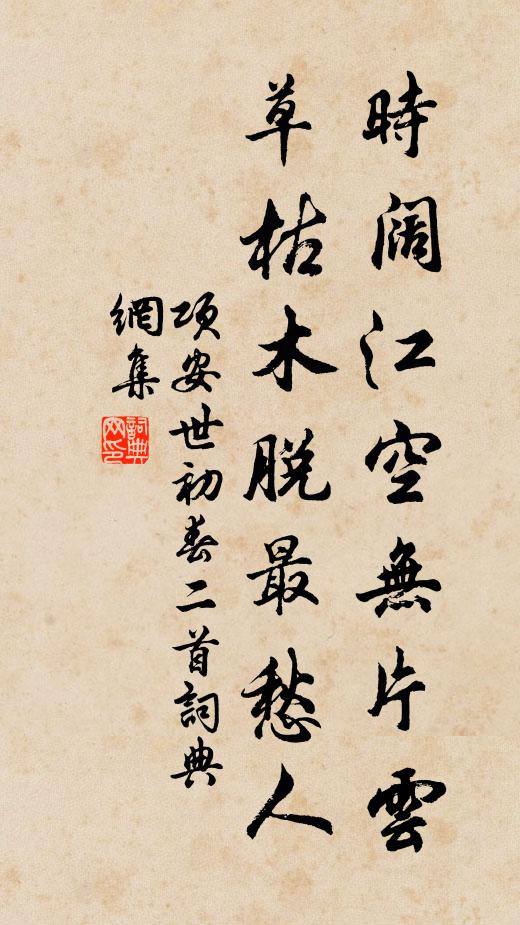 時阔江空無片雲
草枯木脱最愁人
项安世初春二首詞典
網集
詞典
网印